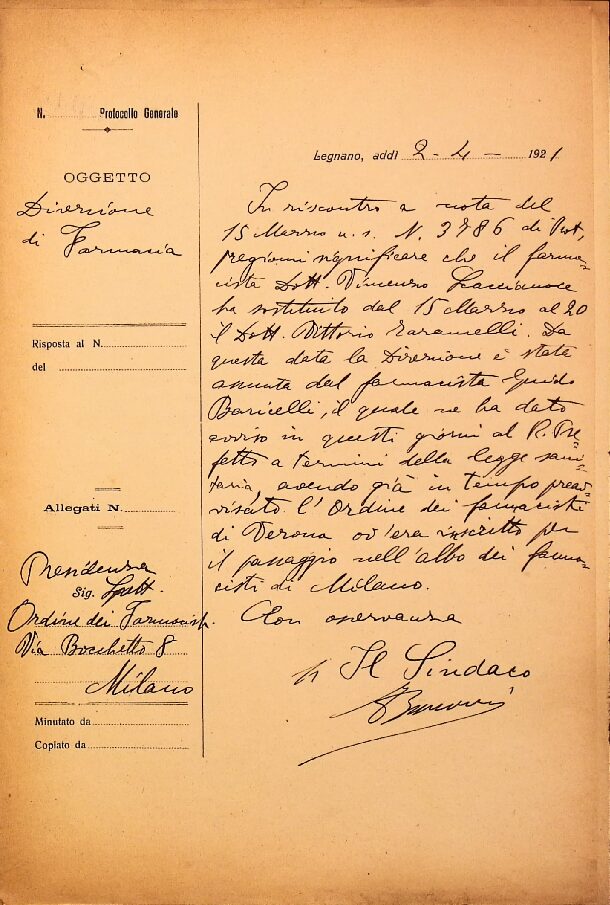 N. Protocollo Generale
OGGETTO
Direzione
di Farmacia
Risposta al N.
del
Allegati N.
Presidenza
Sig. Spett.
Ordine dei Farmacisti
Via Bocchetto 8
Milano
Minutato da
Copiato da
Legnano, addì 2 - 4 - 1921
In riscontro a nota del
15 Marzo u. s. N. 3786 di Prot,
pregiomi significare che il farma-
cista Dott. Vincenzo
ha sostituito dal 15 Marzo al 20
il Dott. Vittorio Zaramelli. Da
questa data la Direzione è stata
assunta dal farmacista Guido
Baricelli, il quale ne ha dato
avviso in questi giorni al R. Pre-
fetto a termini della legge sani-
taria, avendo già in tempo preav-
visato l'Ordine dei farmacisti
di Verona ov'era inscritto per
il passaggio nell'albo dei farma-
cisti di Milano.
Con osservanza
p Il Sindaco